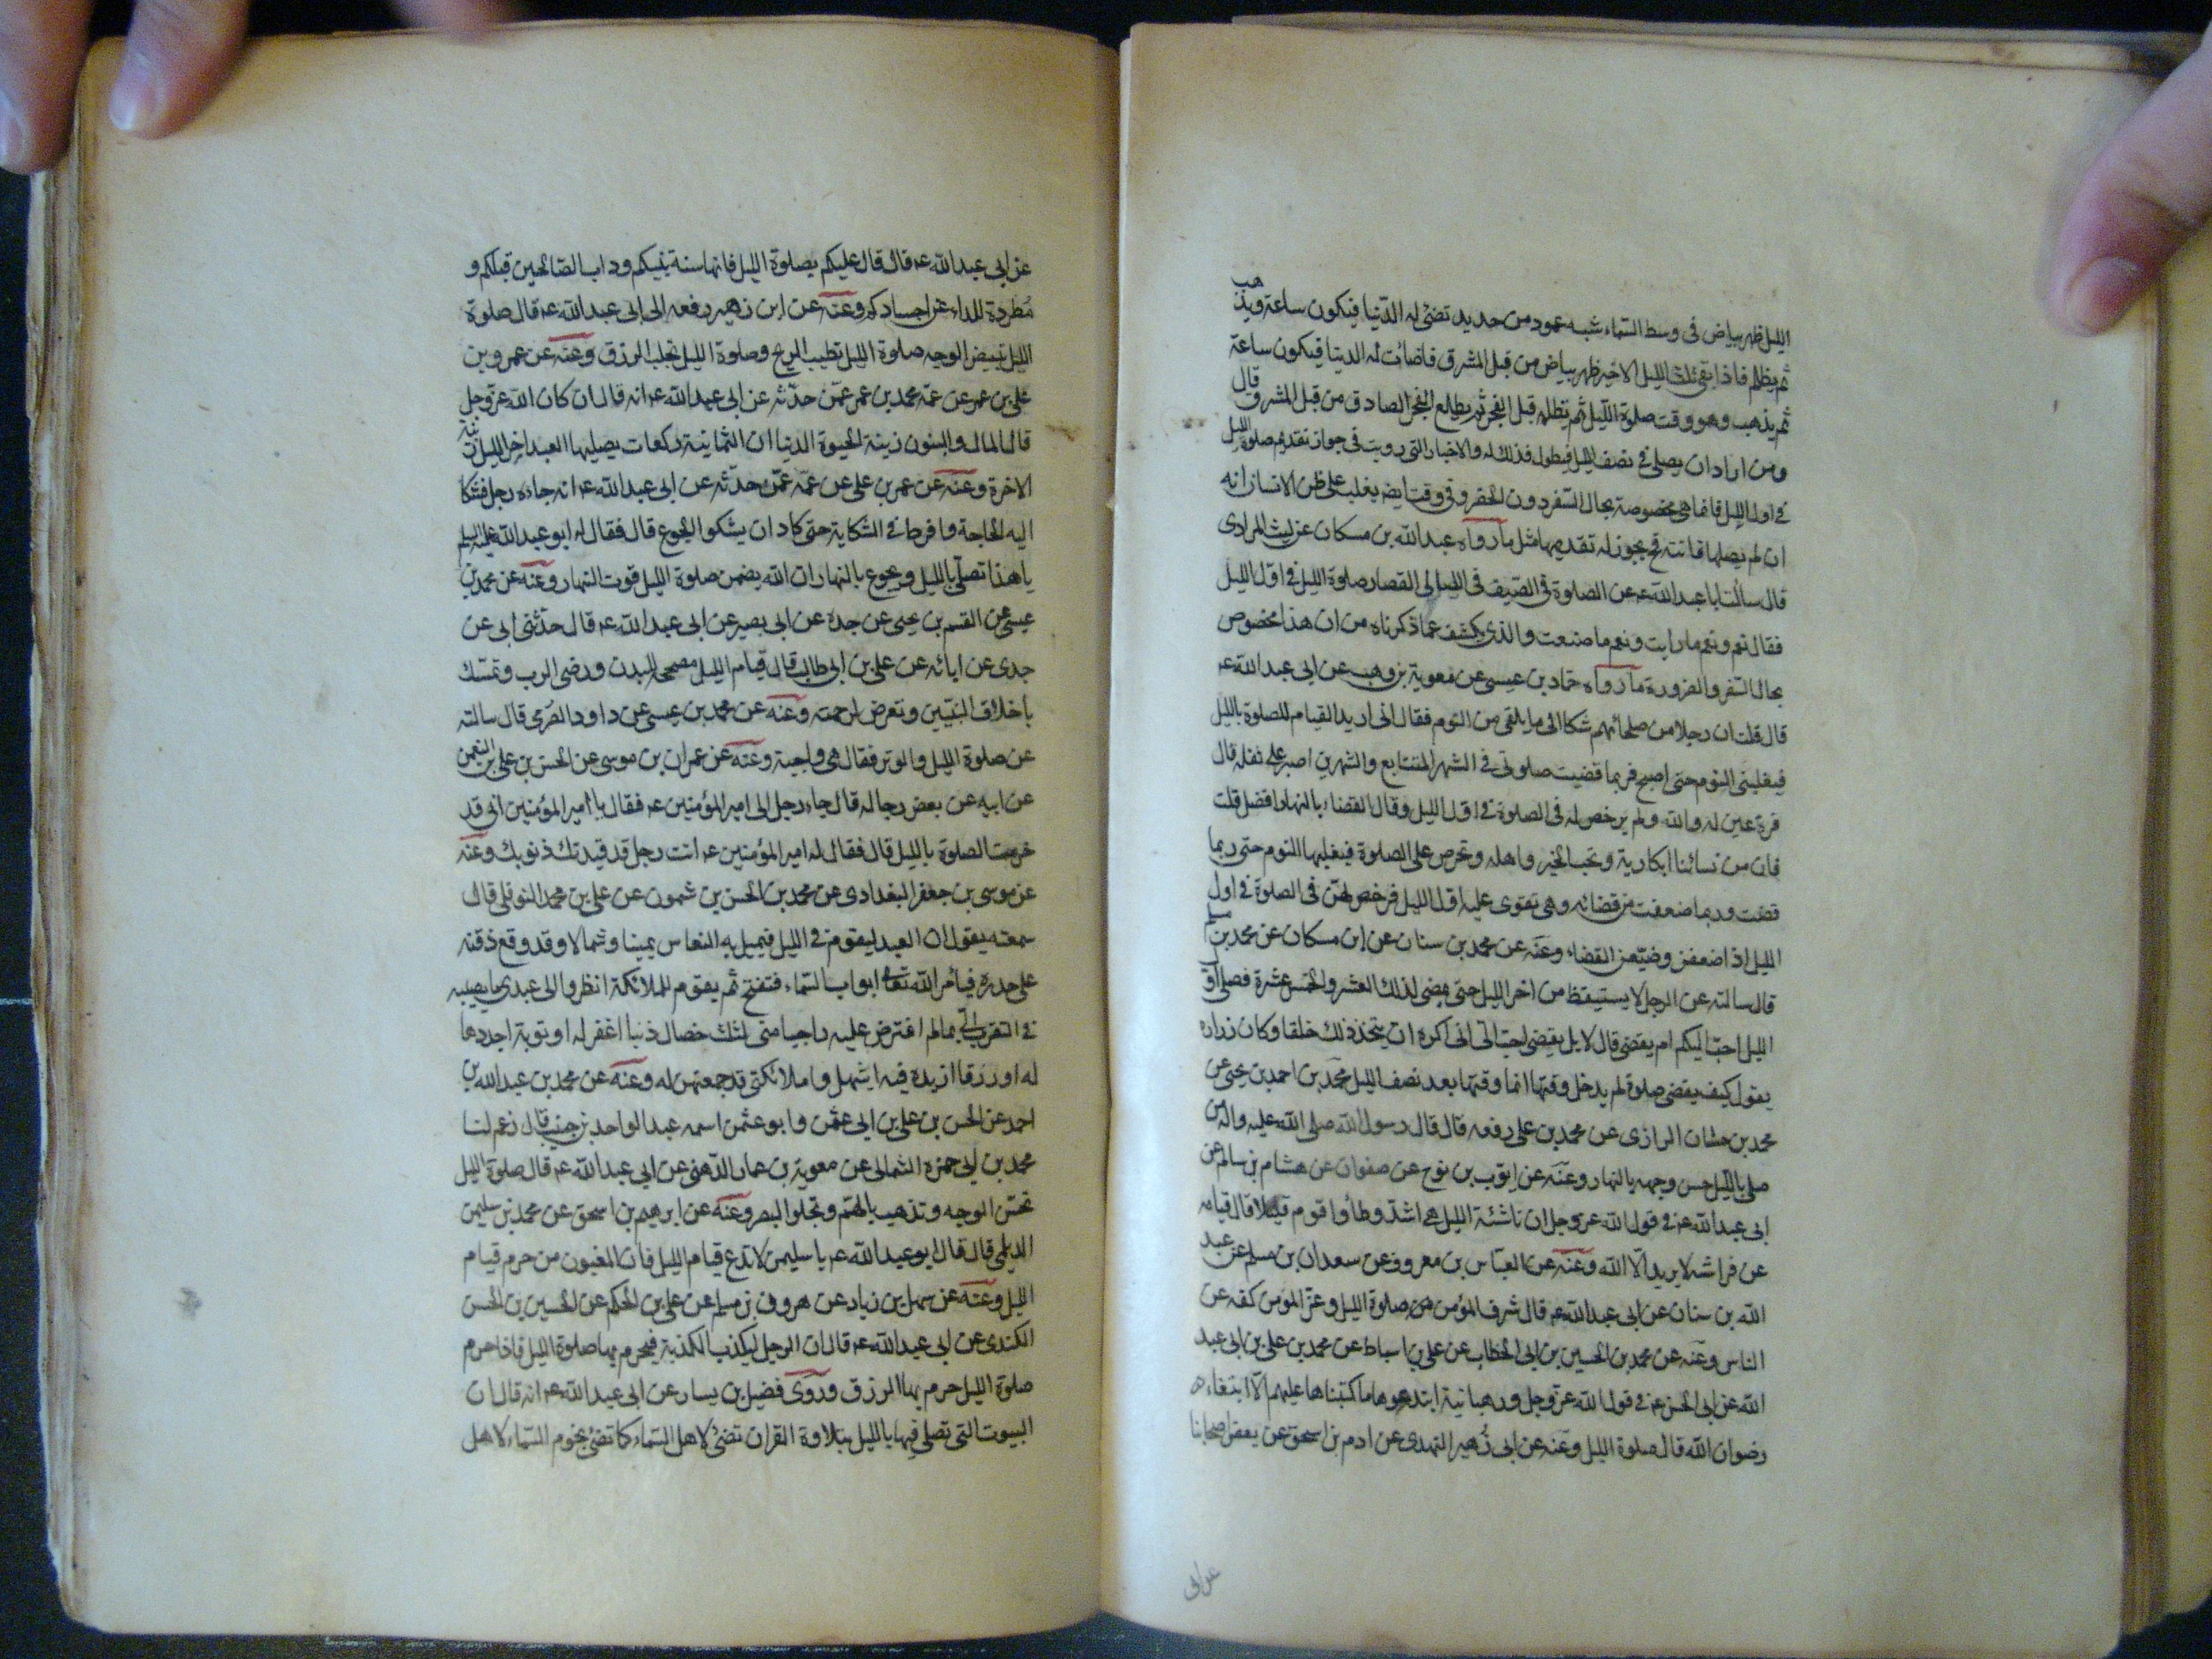 هب
الليل ظهر بياض في وسط السّماء شبه عمود من حديد تضئ له الدّنيا فيكون ساعة ويذ
ثم يظلم فاذا بقى ثلث الليل الاخير ظهر بياض من قبل المشرق فاضائت له الدنيا فيكون ساعة
ثم يذهب وهو وقت صلوة اللّيل ثم يظلم قبل الفجر ثم يطلع الفجر الصادق من قبل المشرق قال
ومن اراد ان يصلى فى نصف الليل فيطول فذلك له والاخبار التى رويت فى جواز تقديم صلوة الليل
فى اول الليل فانما هى مخصوصة بحال السّفر دون الحضر وفى وقت ايضا يغلب على ظن الانسان انه
ان لم يصلها فاتته فح يجوز له تقديمها مثل ما رواه عبد الله بن مسكان عن ليث المرادى
قال سالت ابا عبد الله عه عن الصلوة فى الصّيف فى الليالى القصار صلوة الليل فى اوّل الليل
فقال نعم ونعم ما رايت ونعم ما صنعت والذى يكشف عما ذكرناه من ان هذا مخصوص
بحال السّفر والضرورة ما رواه حماد بن عيسى عن معوية بن وهب عن ابى عبد الله عه
قال قلت ان رجلا من صلحائهم شكا الى ما يلقى من النوم فقال انى اريد القيام للصلوة بالليل
فيغلبنى النوم حتى اصبح فربما قضيت صلوتى فى الشهر المتتابع والشهرين اصبر على ثقله قال
قرة عين له والله ولم يرخص له فى الصلوة فى اوّل الليل وقال القضاء بالنهار افضل قلت
فان من نسائنا ابكارية وتحب الخير واهله وتحرص على الصلوة فيغلبها النوم حتى ربما
قضت وربما ضعفت من قضائه وهى تقوى عليه اوّل الليل فرخص لهنّ فى الصلوة فى اول
الليل اذا ضعفن وضيّعن القضاء وعنه عن محمد بن سنان عن ابن مسكان عن محمد بن مسلم
قال سالته عن الرجل لا يستيقظ من اخر الليل حتى يمضى لذلك العشر والخمس عشرة فصلى اوّل
الليل احبّ اليكم ام يقضى قال لا بل يقضى احبّ الىّ انى اكره ان يتخذ ذلك خلقا وكان زراره
يقول كيف يقضى صلوة لم يدخل وقتها انما وقتها بعد نصف الليل محمد بن احمد بن يحيى عن
محمد بن حسّان الرازى عن محمد بن على رفعه قال قال رسول الله صلى الله عليه واله من
صلى بالليل حسن وجهه بالنهار وعنه عن ايّوب بن نوح عن صفوان عن هشام بن سالم عن
ابى عبد الله عه فى قول الله عز وجل ان ناشئة الليل هى اشدّ وطأ واقوم قيلا قال قيامه
عن فراشه لا يريد الّا الله وعنه عن العبّاس بن معروف عن سعدان بن مسلم عن عبد
الله بن سنان عن ابى عبد الله عه قال شرف المؤمن صلوة الليل وعزّ المؤمن كفه عن
الناس وعنه عن محمد بن الحسين بن ابى الخطاب عن على بن اسباط عن محمد بن على بن ابى عبد
الله عن ابى الحسن عه فى قول الله عزّ وجل ورهبانية ابتدعوها ما كتبناها عليهم الّا ابتغاء
رضوان الله قال صلوة الليل وعنه عن ابى زهير النهدى عن ادم بن اسحق عن بعض اصحابنا
عن ابى
عن ابى عبد الله عه قال قال عليكم بصلوة الليل فانها سنة نبيكم وداب الصّالحين قبلكم و
مطردة للداء عن اجسادكم وعنه عن ابن زهير رفعه الى ابى عبد الله عه قال صلوة
الليل تبيض الوجه صلوة الليل تطيب الريح وصلوة الليل تجلب الرزق وعنه عن عمرو بن
على بن عمر عن عمّه محمد بن عمر عمّن حدّثه عن ابى عبد الله عه انه قال ان كان الله عزّ وجل
قال المال والبنون زينة الحيوة الدنيا ان الثمانية ركعات يصليها العبد اخر الليل زينة
الاخرة وعنه عن عمر بن على عن عمّه عمّن حدّثه عن ابى عبد الله عه انه جاءه رجل فشكا
اليه الحاجة وافرط فى الشكاية حتى كاد ان يشكوا الجوع قال فقال له ابو عبد الله عليه السلم
يا هذا تصلّى بالليل وتجوع بالنهار ان الله يضمن صلوة الليل قوت النهار وعنه عن محمد بن
عيسى عن القسم بن يحيى عن جده عن ابى بصير عن ابى عبد الله عه قال حدّثنى ابى عن
جدى عن ابائه عن على بن ابى طالب قال قيام الليل مصحة البدن ورضى الرب وتمسّك
باخلاق النبيّين وتعرض لرحمته وعنه عن محمد بن عيسى عن داود الصّرمى قال سالته
عن صلوة الليل والوتر فقال هى واجبة وعنه عن عمران بن موسى عن الحسن بن على بن النعمن
عن ابيه عن بعض رجاله قال جاء رجل الى امير المؤمنين عه فقال يا امير المؤمنين انى قد
حرمت الصلوة بالليل قال فقال له امير المؤمنين عه انت رجل قد قيدتك ذنوبك وعنه
عن موسى بن جعفر البغدادى عن محمد بن الحسن بن شمون عن على بن محمد النوفلى قال
سمعته يقول ان العبد ليقوم فى الليل فيميل به النعاس يمينا وشمالا وقد وقع ذقنه
على صدره فيامر الله تعالى ابواب السّماء فتفتح ثم يقول للملائكة انظروا الى عبدى ما يصيبه
فى التقرب الىّ بما لم افترض عليه راجيا منى لثلث خصال ذنبا اغفر له او توبة اجددها
له او رزقا ازيده فيه اشهدوا ملائكتى قد جمعتهن له وعنه عن محمد بن عبد الله بن
احمد عن الحسن بن على بن ابى عثمن وابو عثمن اسمه عبد الواحد بن حبيب قال زعم لنا
محمد بن ابى حمزه الثمالى عن معوية بن عمار الدّهنى عن ابى عبد الله عه قال صلوة الليل
تحسّن الوجه وتذهب بالهمّ وتجلوا البصر وعنه عن ابرهيم بن اسحق عن محمد بن سليمن
الديلمى قال قال ابو عبد الله عه يا سليمن لا تدع قيام الليل فان المغبون من حرم قيام
الليل وعنه عن سهل بن زياد عن هرون بن مسلم عن على بن الحكم عن الحسين بن الحسن
الكندى عن ابى عبد الله عه قال ان الرجل ليكذب الكذبة فيحرم بها صلوة الليل فاذا حرم
صلوة الليل حرم بها الرزق وروى فضيل بن يسار عن ابى عبد الله عه انه قال ان
البيوت التى تصلى فيها بالليل بتلاوة القران تضئ لاهل السّماء كما تضئ نجوم السّماء لاهل